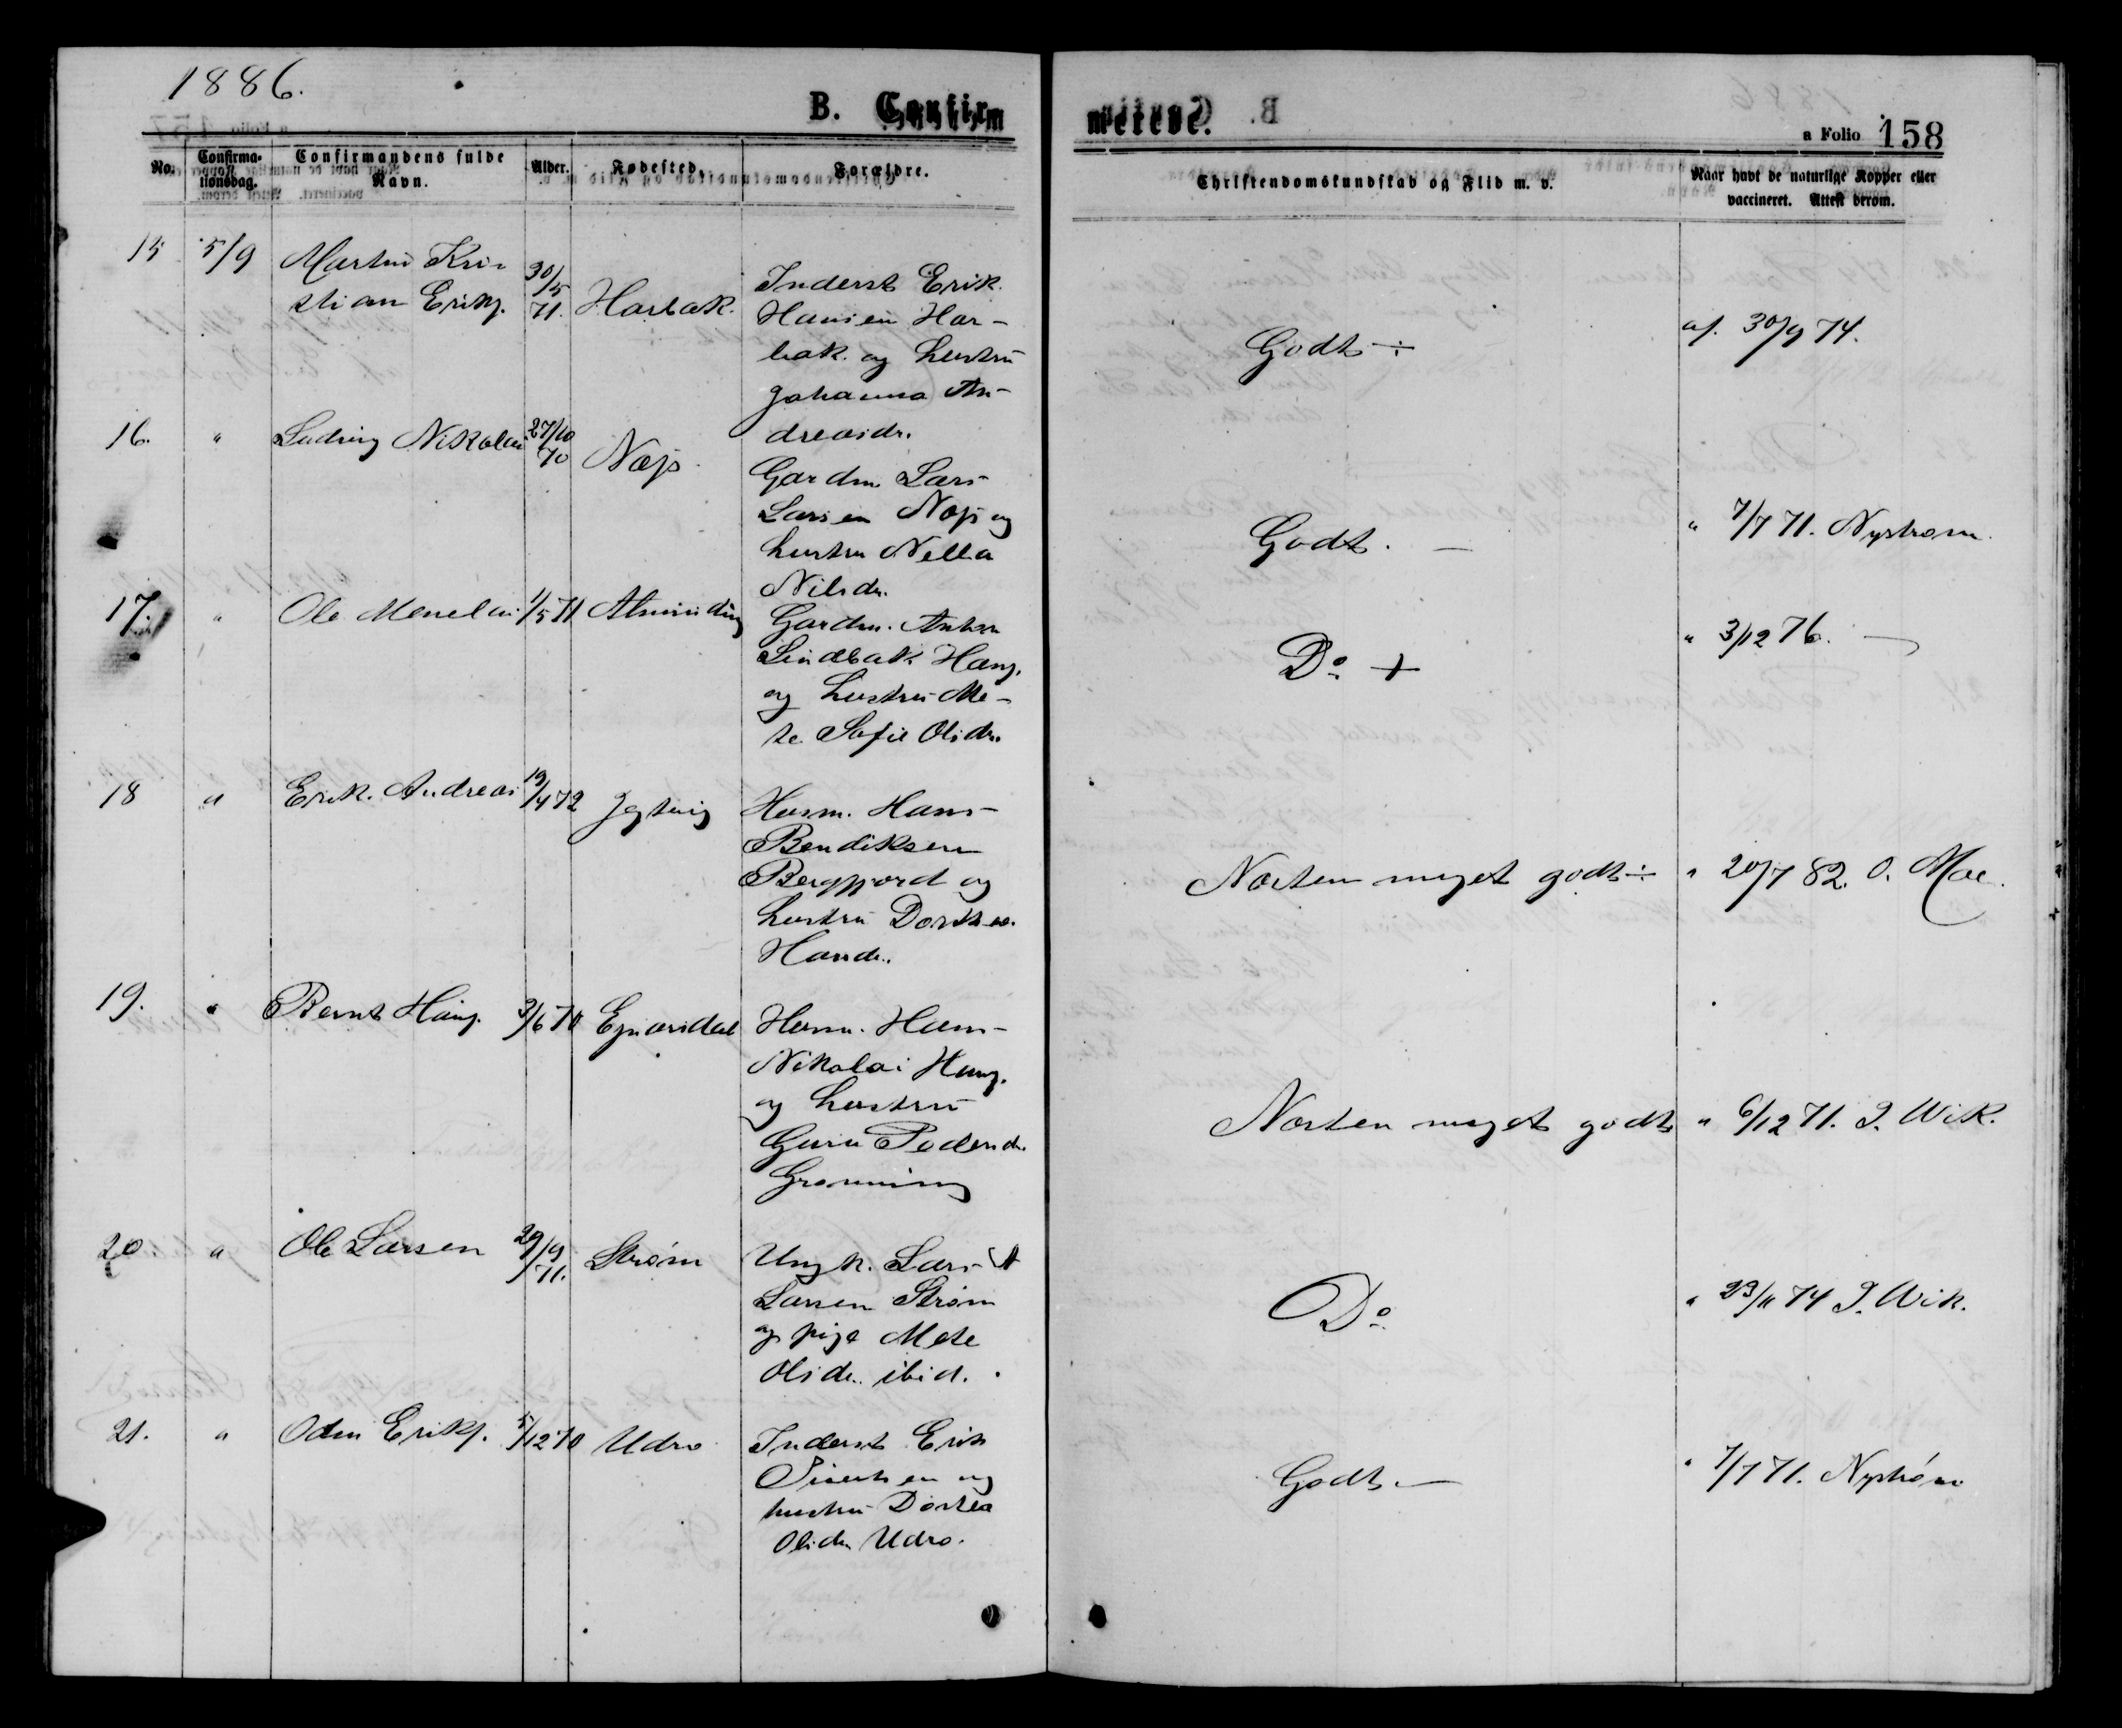 1886.
B. Confirm
merede.
a Folio 158
No. Confirma- tionsdag. Confirmandens fulde Navn. Alder. Fødested. Forældre. Christendomskundskab og Flid m. v. Naar havt de naturlige Kopper eller vaccineret. Attest derom.
15 5/9 Martin Kri-
stian Eriks. 30/5 71. Harbak.
Inderst Erik
Hansen Har-
bak. og hustru
Johanna An-
dreasdr.
Godt ÷
af. 30/9 74.
16. " Ludvig Nikolai 27/10 70
Gaardm. Lars
Larsen og
hustru Nella
Nilsdr.
Godt. —
" 7/7 71. Nystrøm.
17. " Ole 1/5 71 Alminding
Gaardm. Anton
Lindbak Hans.
og hustru Me-
te Sofie Olsdr.
Do. +
" 3/12 76. —
18 " Erik Andreas 19/4 72
Husm. Hans
Bendiksen
Bergfjord og
hustru Dorthea
Hansdr.
Næsten meget godt ÷
" 20/7 82. O. Moe.
19. " Bernt Hans. 3/6 70
Husm. Hans
Nikolai Hans.
og hustru
Guru Pedersdr.
Grønning
Næsten meget godt
" 6/12 71. J. Wik.
20. " Ole Larsen 29/9 71. Strøm
Ungk. Lars A
Larsen Strøm
og pige Mete
Olsdr. ibid.
Do.
" 23/11 74 J. Wik.
21. " Oden Eriks. 5/12 70 Udro
Inderst Erik
Sivertsen og
hustru Dortea
Olsdr. Udro.
Godt. —
" 7/7 71. Nystrøm